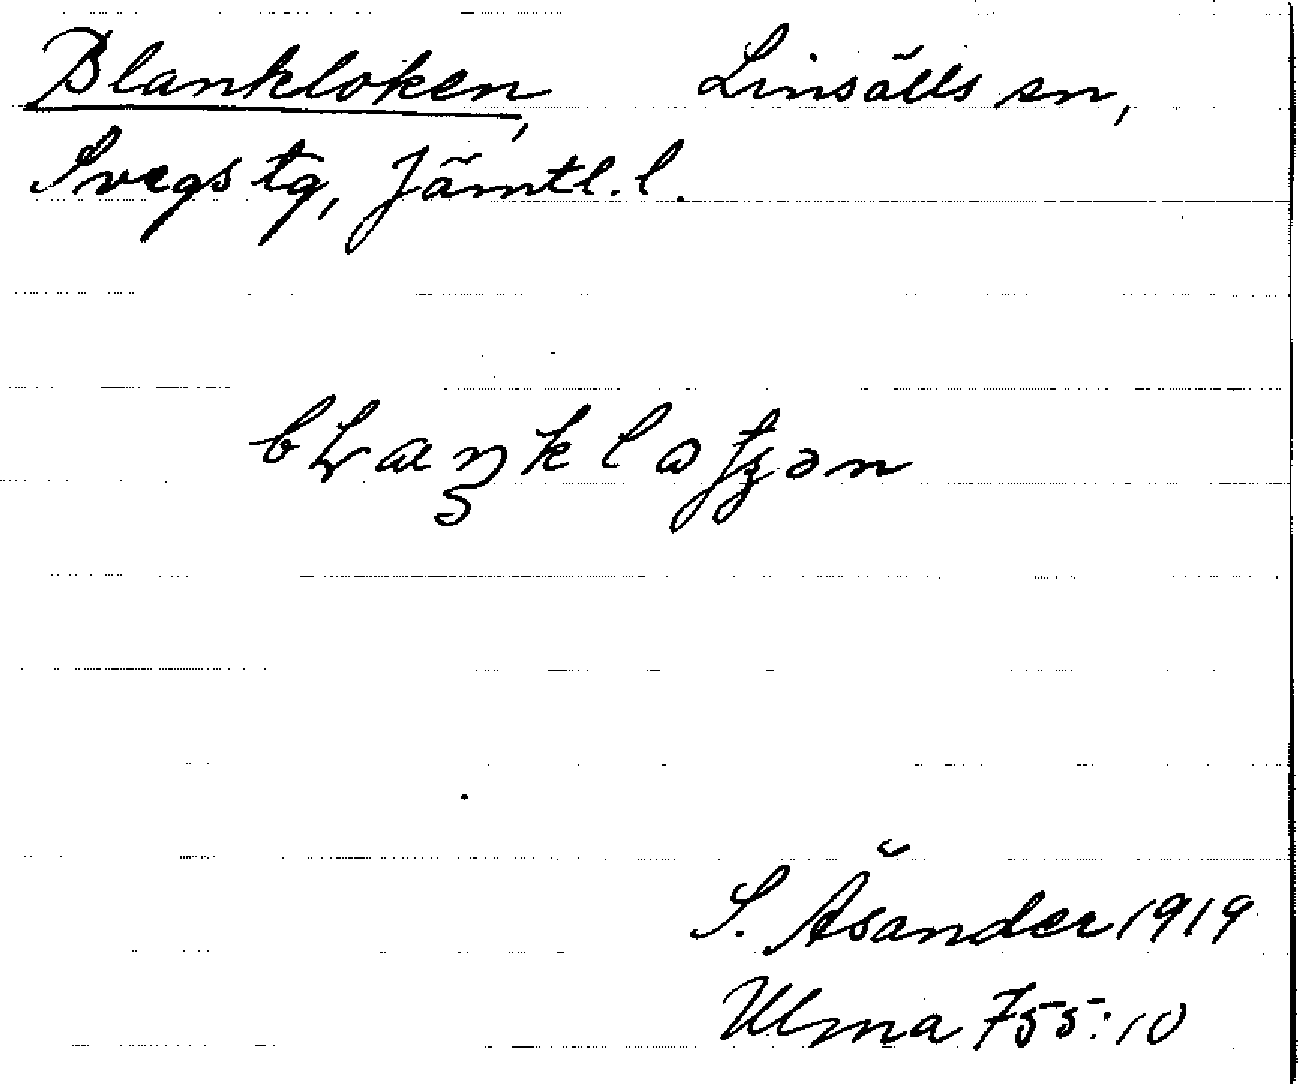 Blankloken, Linsälls sn,
Svegs tg, Jämtl. l.
S. Åsander 1919
Ulma 755:10